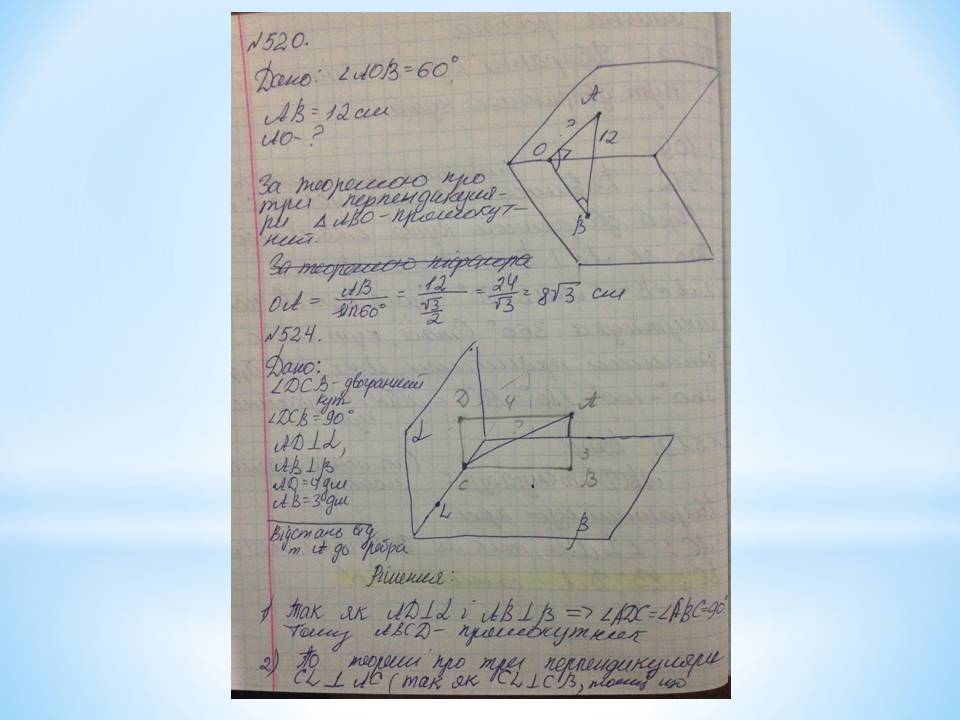 №520.
Дано: ∠AOB = 60°
AB = 12 см
AO - ?
За теоремою про
три перпендикуля-
ри △ABO - прямокут-
ний.
За теоремою піфагора
OA = AB/sin60° = 12/(√3/2) = 24/√3 = 8√3 см
A
?
O
12
B
№524.
Дано:
∠DCB - двогранний
кут
∠DCB = 90°
AD⊥α,
AB⊥β
AD = 4 дм
AB = 3 дм
Відстань від
т. A до ребра
D
4
A
α
?
3
C
B
L
β
Рішення:
1) Так як AD⊥α і AB⊥β => ∠ADC = ∠ABC = 90°
Тому ABCD - прямокутник
2) По теоремі про три перпендикуляри
CL⊥AC (так як CL⊥CB, тому що